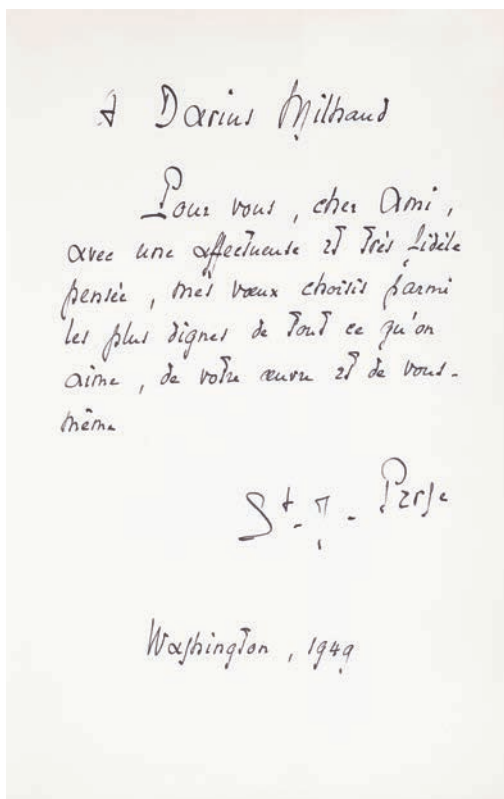 A Darius Milhaud
Pour vous, cher Ami,
avec une affectueuse et très fidèle
pensée, mes vœux choisis parmi
les plus dignes de tout ce qu'on
aime, de votre œuvre et de vous-
même
St-J- Perse
Washington, 1949